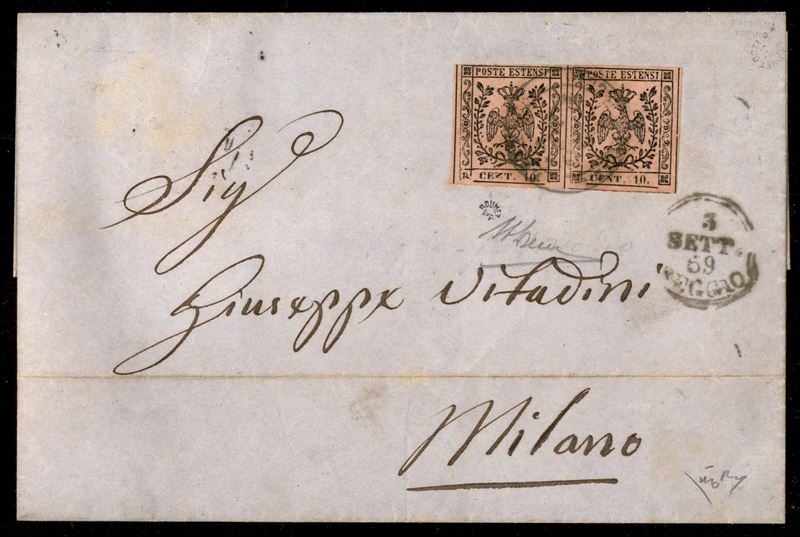 POSTE ESTENSI POSTE ESTENSI
CENT. 10. CENT. 10.
Sig
ROUMET
3
SETT.
59
REGGIO
Giuseppe Vitadini
Milano